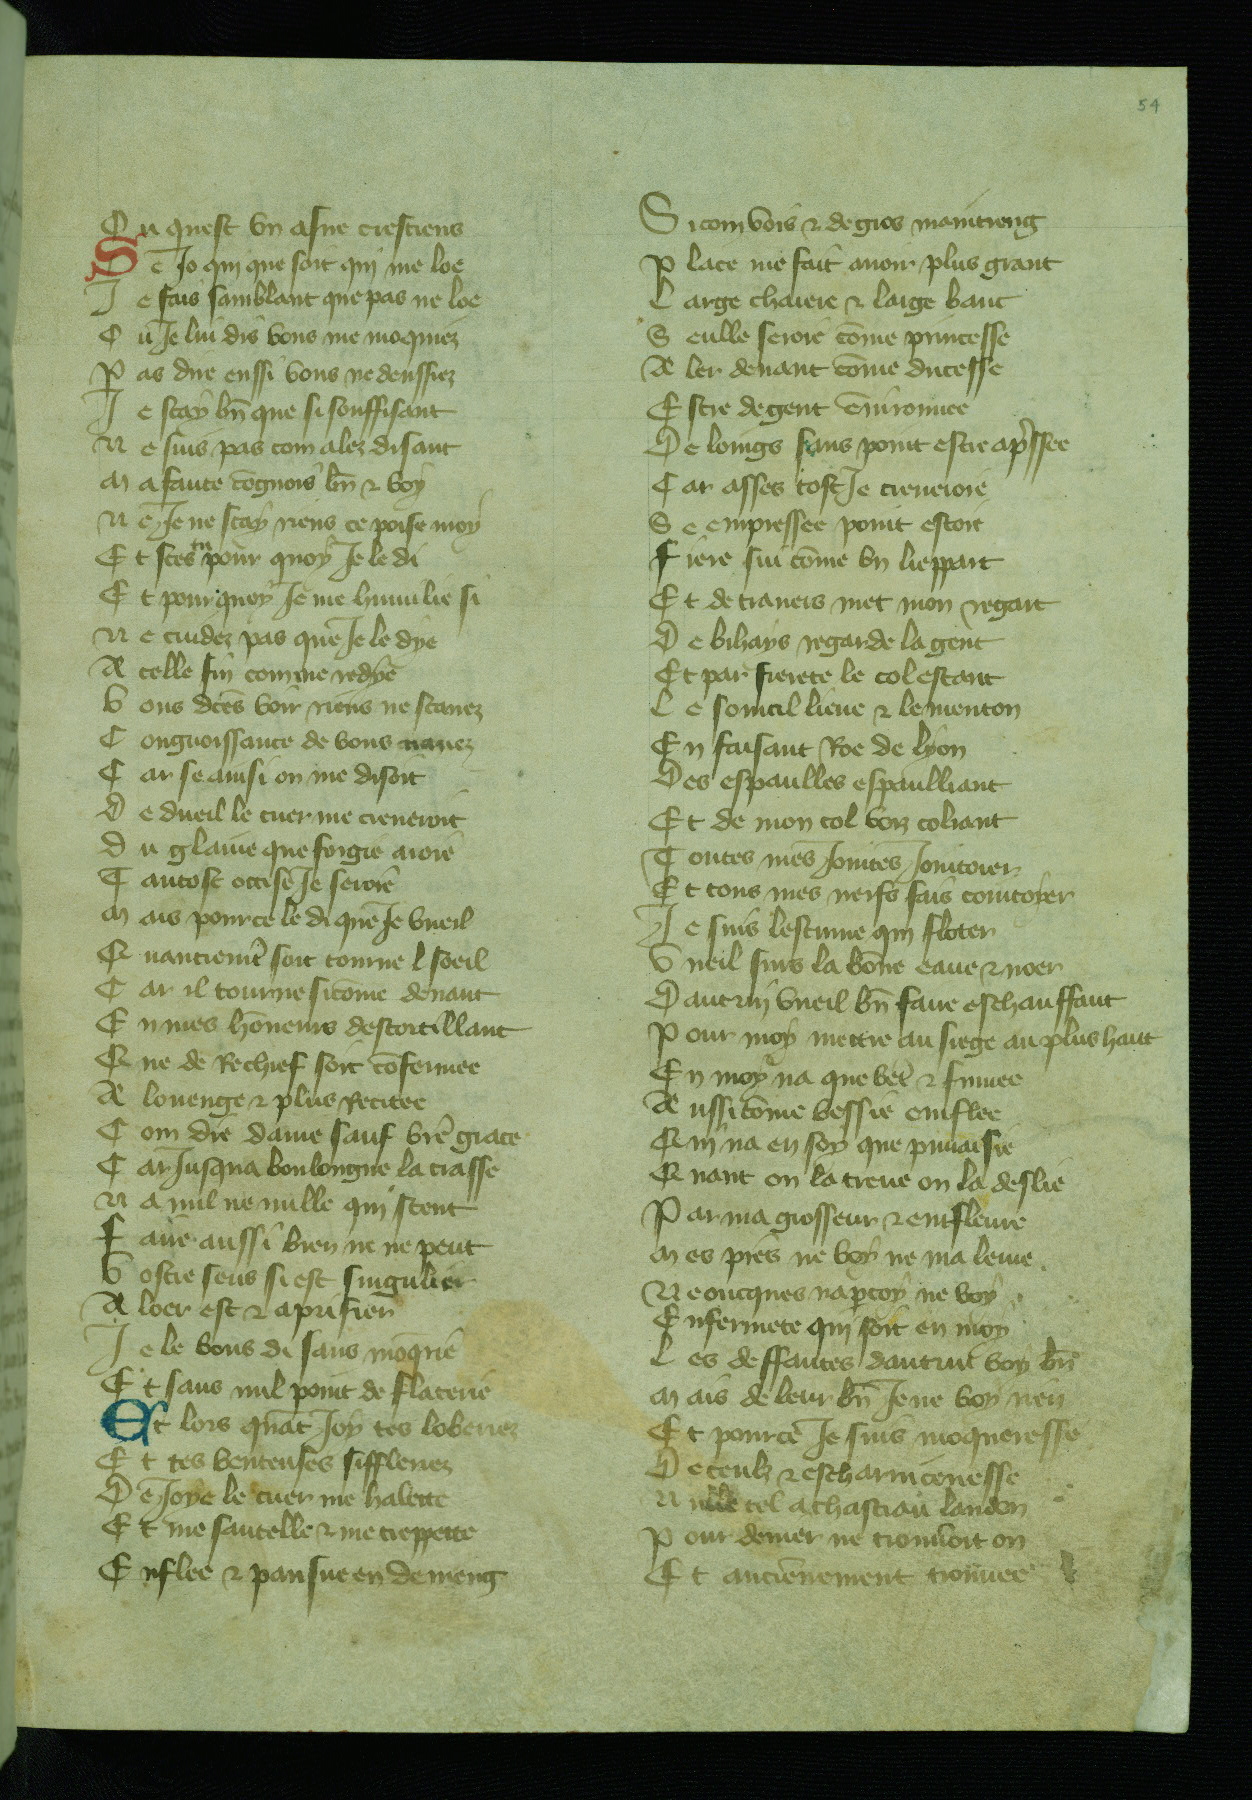 54
Ou quest vn asne crestiens
Se Jo qui que soit qui me loe
Je fais samblant que pas ne loe
Ou Je lui dis vous me moquiez
Pas dire enssi vous ne deussiez
Je scay bn̄ que si souffisant
Ne suis pas com alez disant
Ma faute cōgnois bn̄ & voy
Ne Je ne scay riens ce poise moy
Et sces tu pour quoy Je le di
Et pour quoy Je me humilie si
Ne cuidez pas que Je le dye
A celle fin comme redye
Vous dctes voir riens ne scauez
Congnoissance de vous nauez
Car se ainsi on me disoit
De dueil le cuer me creueroit
Du glaiue que forgie aroie
Tantost occise Je seroie
Mais pource le di que Je vueil
Quantient̄ soit tourne l soeil
Car il tourne sicōme deuant
En mes hōneurs destortillant
Que de Rechief soit cōfermee
A louenge & plus Recitee
Com die dame sauf vre grace
Car Jusqua boulongne la crasse
Na nul ne nulle qui scent
Faire aussi bien ne ne peut
Vostre sens si est singulier
A loer est & a prisier
Je le vous di sans moqrie
Et sans nul point de flaterie
Et lors quāt Joy tes loberiez
Et tes venteuses siffleriez
De Joye le cuer me halette
Et me sautelle & me treppette
Enflee & pansue en demeng
Si com vois & de gros maintieng
Place me fait auoir plus grant
Large chaiere & large banc
Seulle seroie cōme princesse
Aler deuant cōme ducesse
Estre de gent enuironnee
De loings sans point estre ap̄ssee
Car asses tost Je creueroie
Se empressee point estoie
Fiere sui cōme vn lieppart
Et de trauers met mon regart
De bihays regarde la gent
Et par fierete le col estant
Le sourcil lieue & le menton
En faisant Roe de lyon
Des espaulles espaulliant
Et de mon col voiz coliant
Toutes mes Jointes Jointoier
Et tous mes nerfs fais cointoier
Je suis lescume qui floter
Vueil suis la bōne eaue & noer
Dautrui vueil bn̄ faire eschauffaut
Pour moy mettre au siege au plus haut
En moy na que vet̄ & fumee
Aussi cōme vessie emflee
Qui na en soy que punaisie
Quant on la creue on la deslie
Par ma grosseur & emfleure
Mes pies ne voy ne ma leure
Ne oncques nap̄coy ne voy
Enfermete qui soit en moy
Les deffautes dautrui voy bn̄
Mais de leur bn̄ Je ne voy rien
Et pource Je suis moqueresse
De ceulz & escharniceresse
Nulle tel a chastiau landon
Pour denier ne trouuoit on
Et anciēnement trouuee